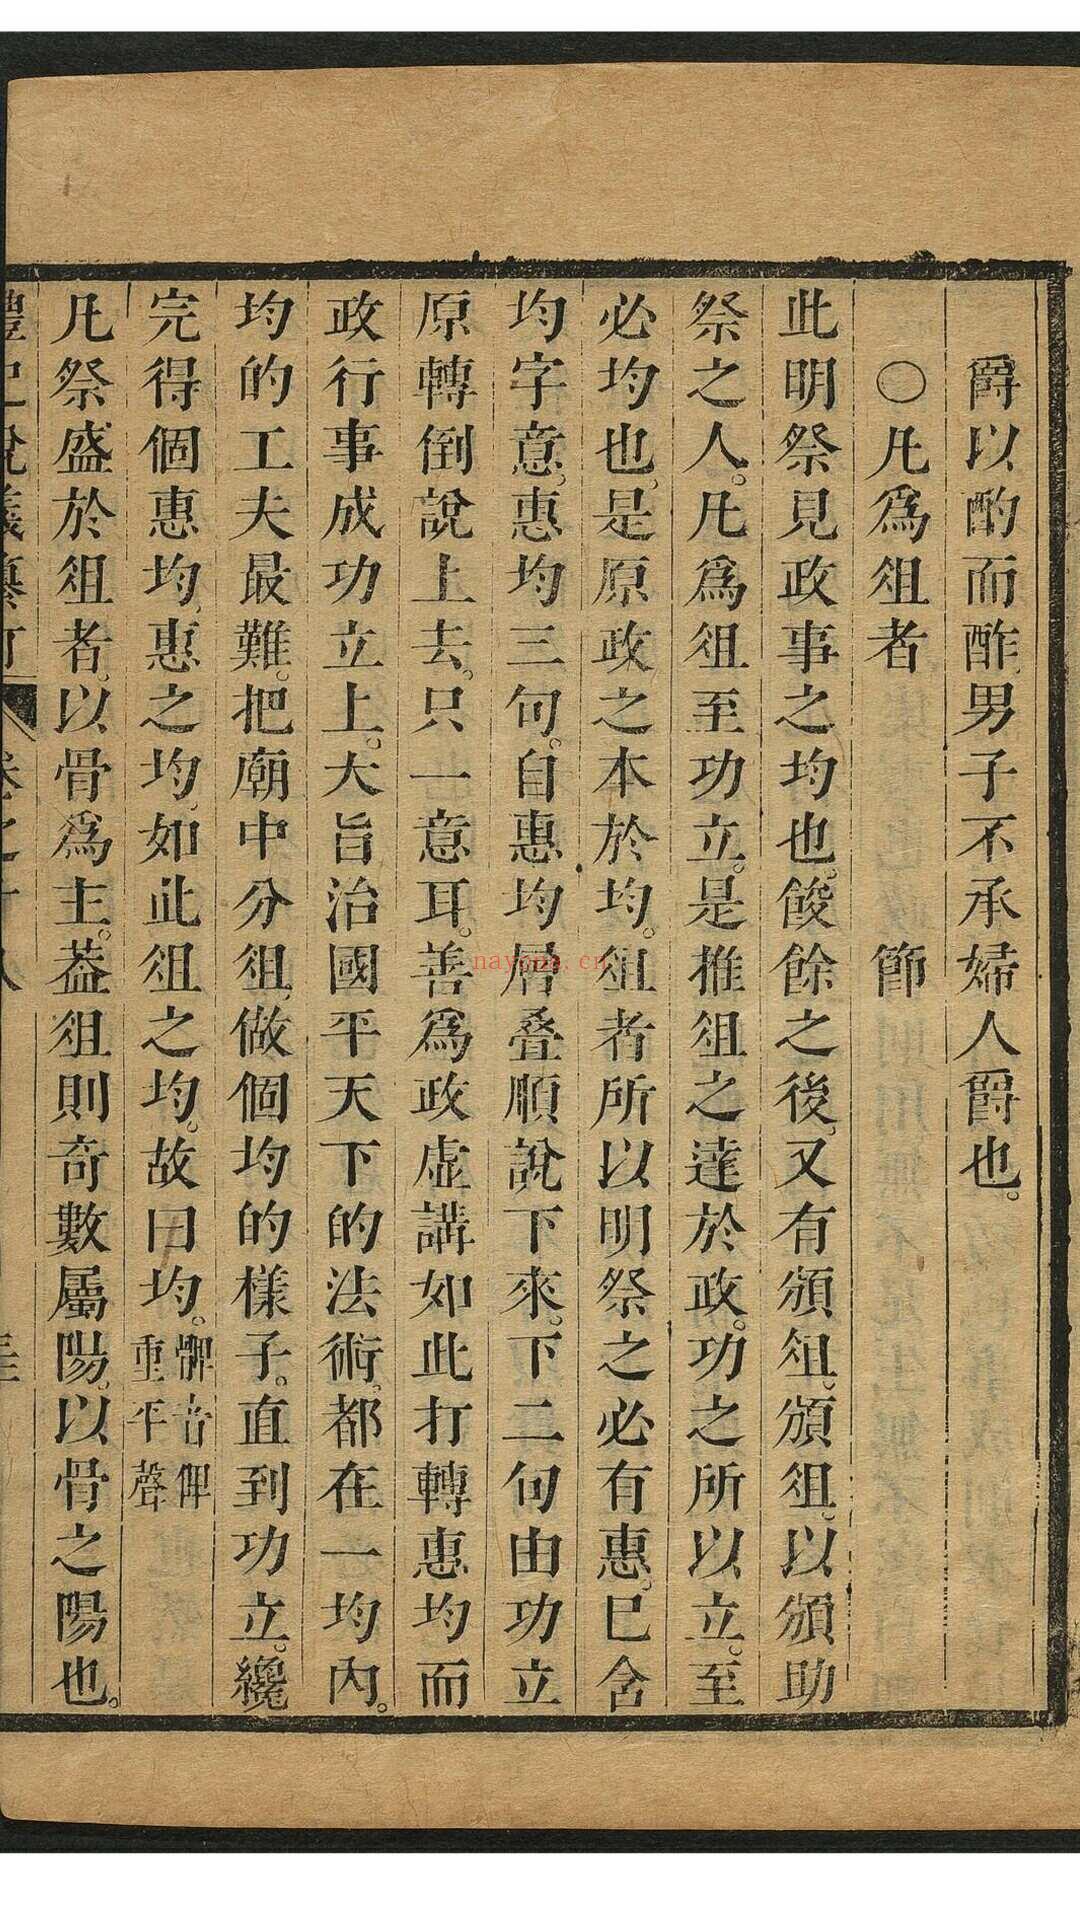 爵以酌而酢。男子不承婦人爵也。
〇凡爲俎者　節
此明祭見政事之均也。餕餘之後。又有頒俎。頒俎。以頒助
祭之人。凡爲俎至功立。是推俎之達於政。功之所以立。至
必均也。是原政之本於均。俎者所以明祭之必有惠。已含
均字意。惠均三句。自惠均層叠順說下來。下二句由功立
原轉倒說上去。只一意耳。善爲政虛講如此打轉惠均而
政行事成功立上。大旨治國平天下的法術。都在一均內。
均的工夫最難。把廟中分俎。做個均的樣子。直到功立。纔
完得個惠均。惠之均。如此俎之均。故曰均。髀音俾
重平聲
凡祭盛於俎者。以骨爲主。葢俎則奇數屬陽。以骨之陽也。
禮記說義纂訂　卷之十八
nayona.cn